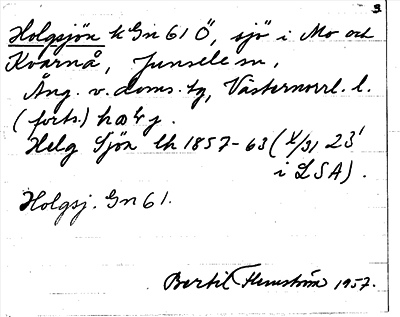 3.
Holgsjön k Gn 61 Ö, sjö i Mo och
Kvarnå, Junsele sn,
Ång. v. doms. tg, Västernorrl. l.
(forts.) hælg.
Helg Sjön lh 1857-63 (X/31 23'
i LSA).
Holgsj. Gn 61.
Bertil Flemström 1957.